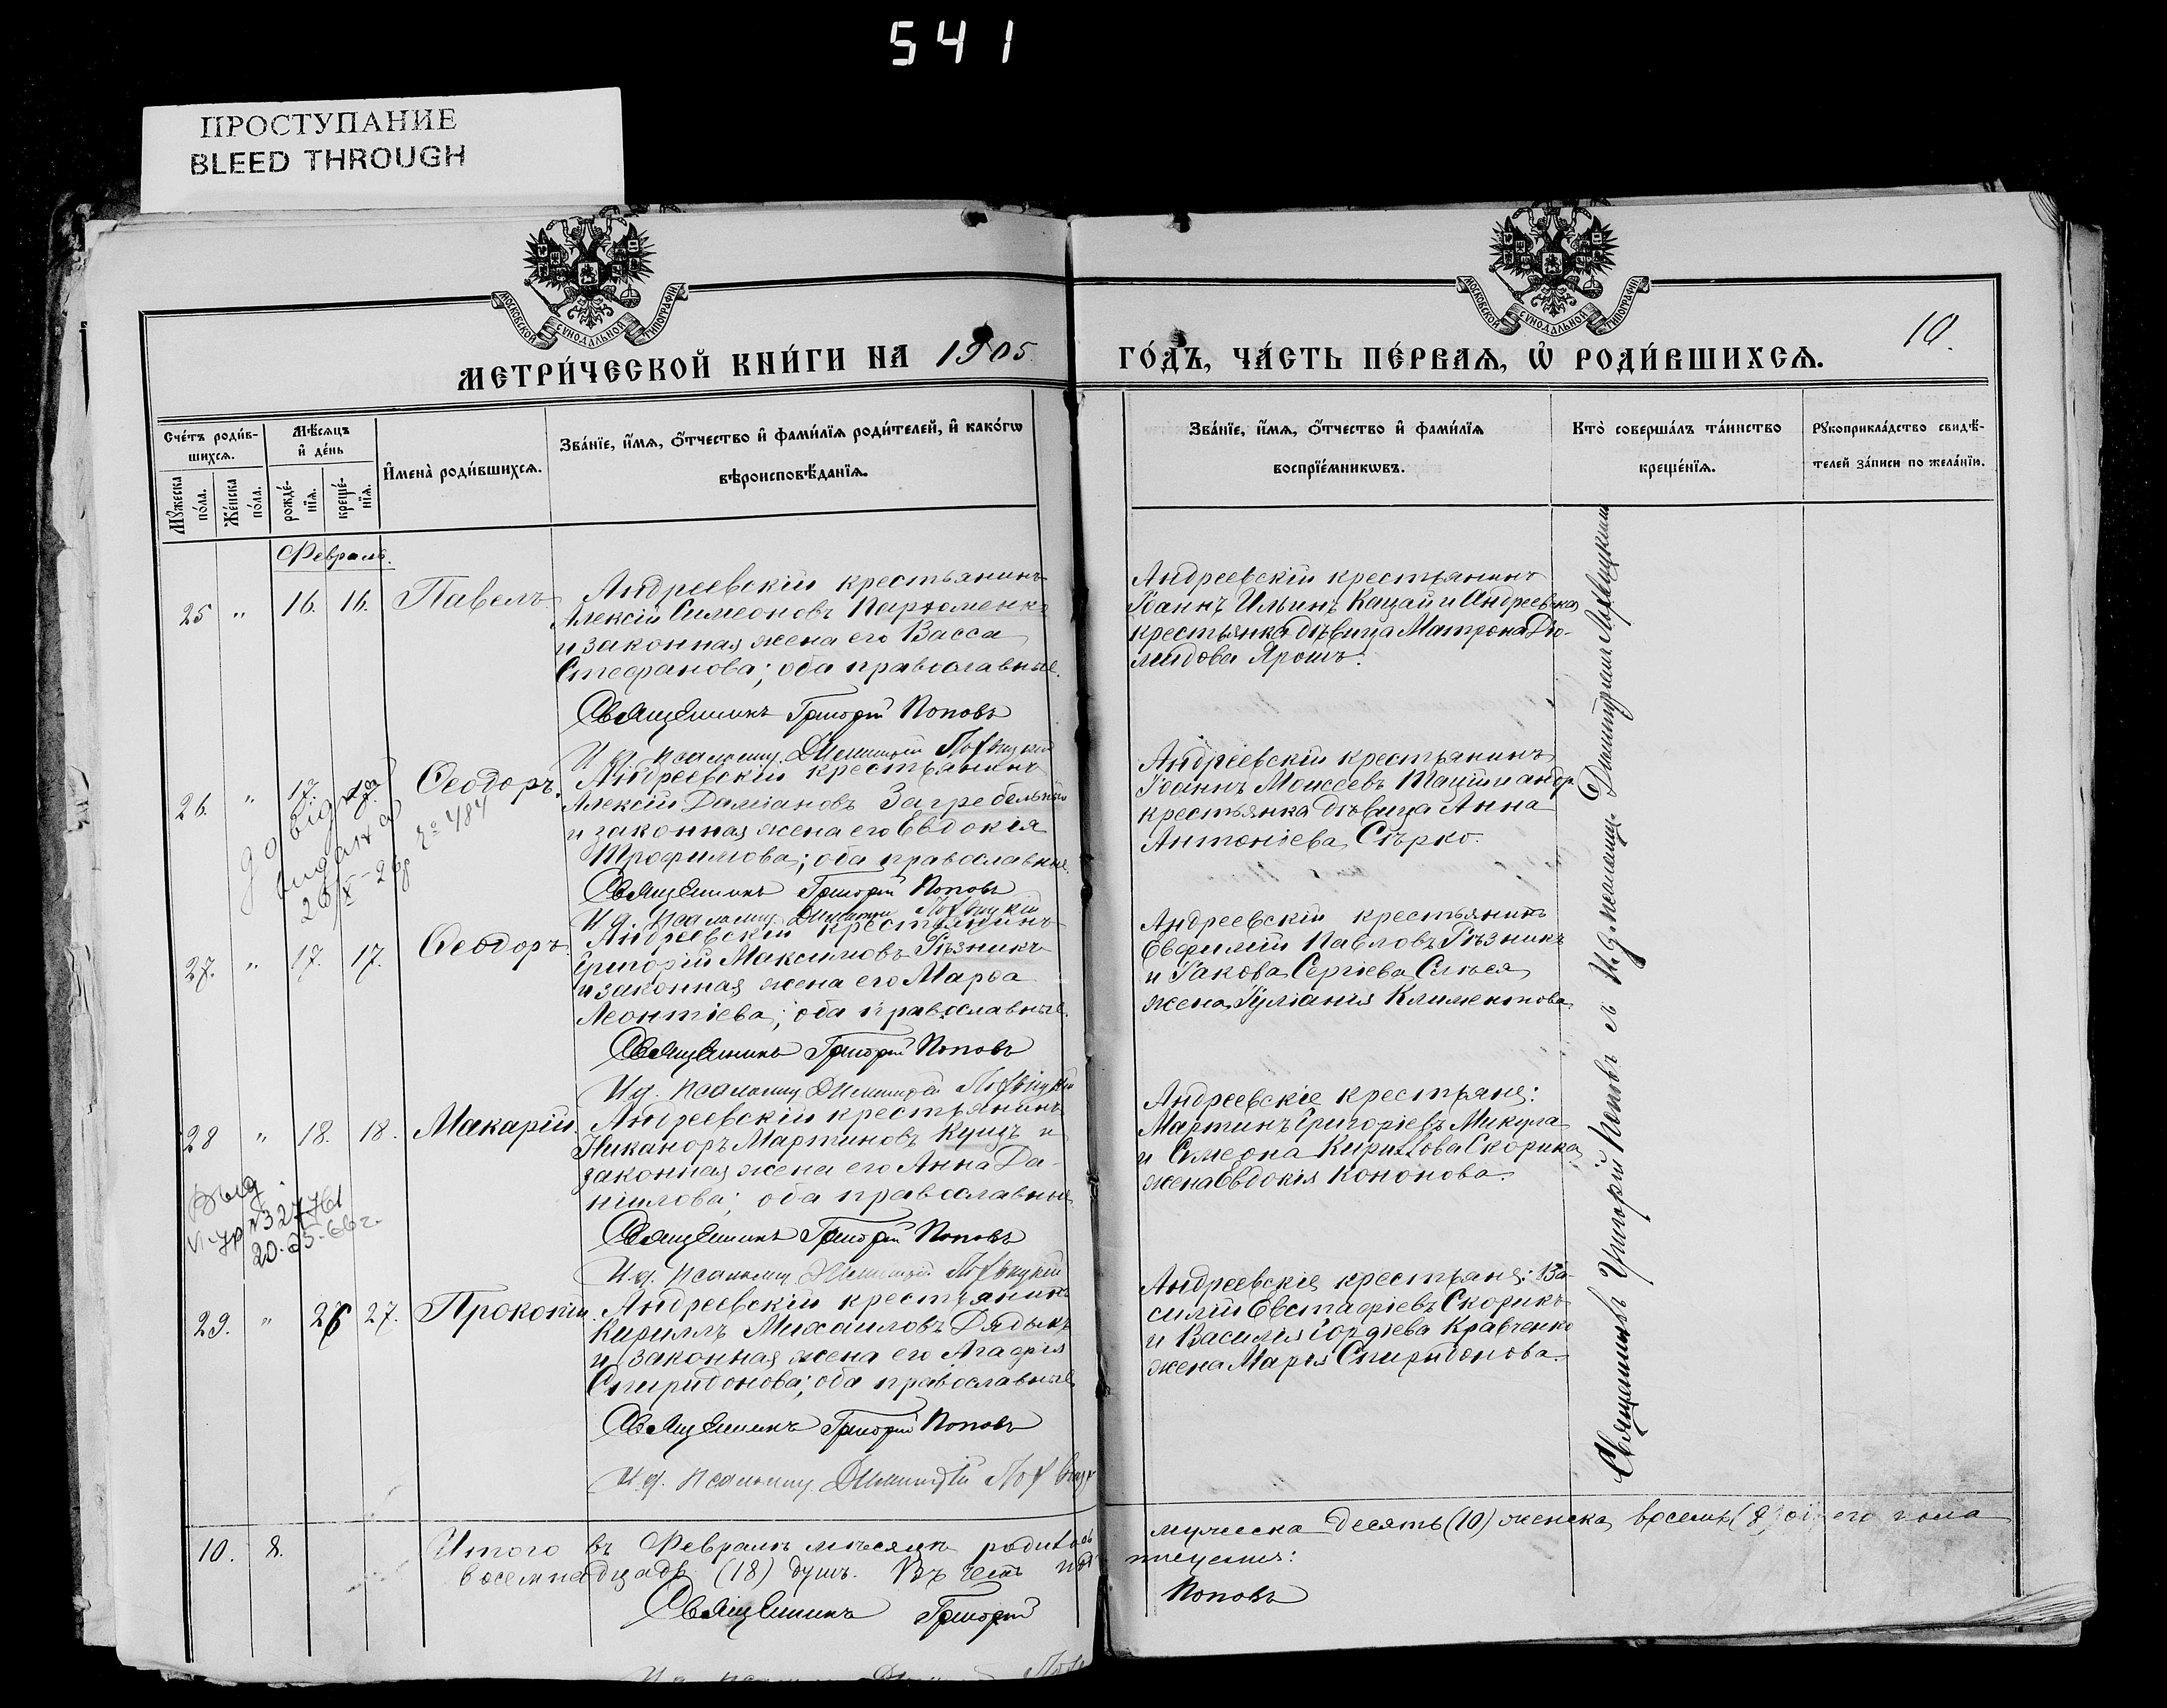 541
ПРОСТУПАНИЕ
BLEED THROUGH
МОСКОВСКОЙ СУНОДАЛЬНОЙ ТИПОГРАФІИ
МОСКОВСКОЙ СУНОДАЛЬНОЙ ТИПОГРАФІИ
10.
МЕТРИ́ЧЕСКОЙ КНИ́ГИ НА 1905
ГО́ДЪ, ЧА́СТЬ ПЕ́РВАѦ, Ѽ РОДИ́ВШИХСѦ.
Сче́тъ роди́в-
шихсѧ.
Мꙋ́жеска
по́ла.
Же́нска
по́ла.
Мѣ́сѧцъ
и҆ де́нь
рожде́-
нїѧ.
креще́-
нїѧ.
И҆мена̀ роди́вшихсѧ.
Зва́нїе, и҆́мѧ, ѻ҆́тчество и҆ фами́лїѧ роди́телей, и҆ како́гѡ
вѣроисповѣ́данїѧ.
Зва́нїе, и҆́мѧ, ѻ҆́тчество и҆ фами́лїѧ
воспрїе́мникѡвъ.
Кто̀ соверша́лъ та́инство
креще́нїѧ.
Рꙋкоприкла́дство свидѣ́-
телей за́писи по жела́нїю.
Февраль.
25 " 16. 16. Павелъ.
Андреевскій крестьянинъ
Алексій Симеоновъ Пархоменко
и законная жена его Васса
Стефанова; оба православные.
Священникъ Григорій Поповъ
И. д. псаломщ. Димитрій Лохвицкій
Андреевскій крестьянинъ
Іоаннъ Ильинъ Кацай и Андреевская
крестьянка дѣвица Матрона Дю-
мидова Ярошъ.
26. " 17. 17. Ѳеодоръ.
Андреевскій крестьянинъ
Алексій Даміановъ Загребельный
и законная жена его Евдокія
Трофимова; оба православные.
Священникъ Григорій Поповъ
И. д. псаломщ. Димитрій Лохвицкій
№ 484
Андреевскій крестьянинъ
Іоаннъ Моисеевъ Тацій и андр.
крестьянка дѣвица Анна
Антоніева Сѣрко.
27. " 17. 17. Ѳеодоръ.
Андреевскій крестьянинъ
Григорій Максимовъ Рѣзникъ
и законная жена его Марѳа
Леонтіева; оба православные.
Священникъ Григорій Поповъ
И. д. псаломщ. Димитрій Лохвицкій
Андреевскій крестьянинъ
Евфимій Павловъ Рѣзникъ
и Іакова Сергіева
жена Іуліанія Климентова.
28 " 18. 18. Макарій.
Андреевскій крестьянинъ
Никаноръ Мартиновъ Куцъ и
законная жена его Анна Да-
ніилова; оба православные
Священникъ Григорій Поповъ
И. д. псаломщ. Димитрій Лохвицкій
Андреевскіе крестьяне:
Мартинъ Григоріевъ Микула
и Симеона Кириллова Скорика
жена Евдокія Кононова.
29. " 26 27. Прокопій.
Андреевскій крестьянинъ
Кириллъ Михаиловъ Дядыкъ
и законная жена его Агафія
Спиридонова; оба православные.
Священникъ Григорій Поповъ
И. д. псаломщ. Димитрій Лохвицк
Андреевскіе крестьяне: Ва-
силій Евстафіевъ Скорикъ
и Василія Гордіева Кравченко
жена Марія Спиридонова.
Священникъ Григорій Поповъ съ И. д. псаломщ. Димитріемъ Лохвицкимъ
10. 8. Итого въ Февралѣ мѣсяцѣ родилось мужеска десять (10) женска восемь (8) обоего пола
восемнадцать (18) душъ. Въ чемъ подписуемся:
Священникъ Григорій Поповъ